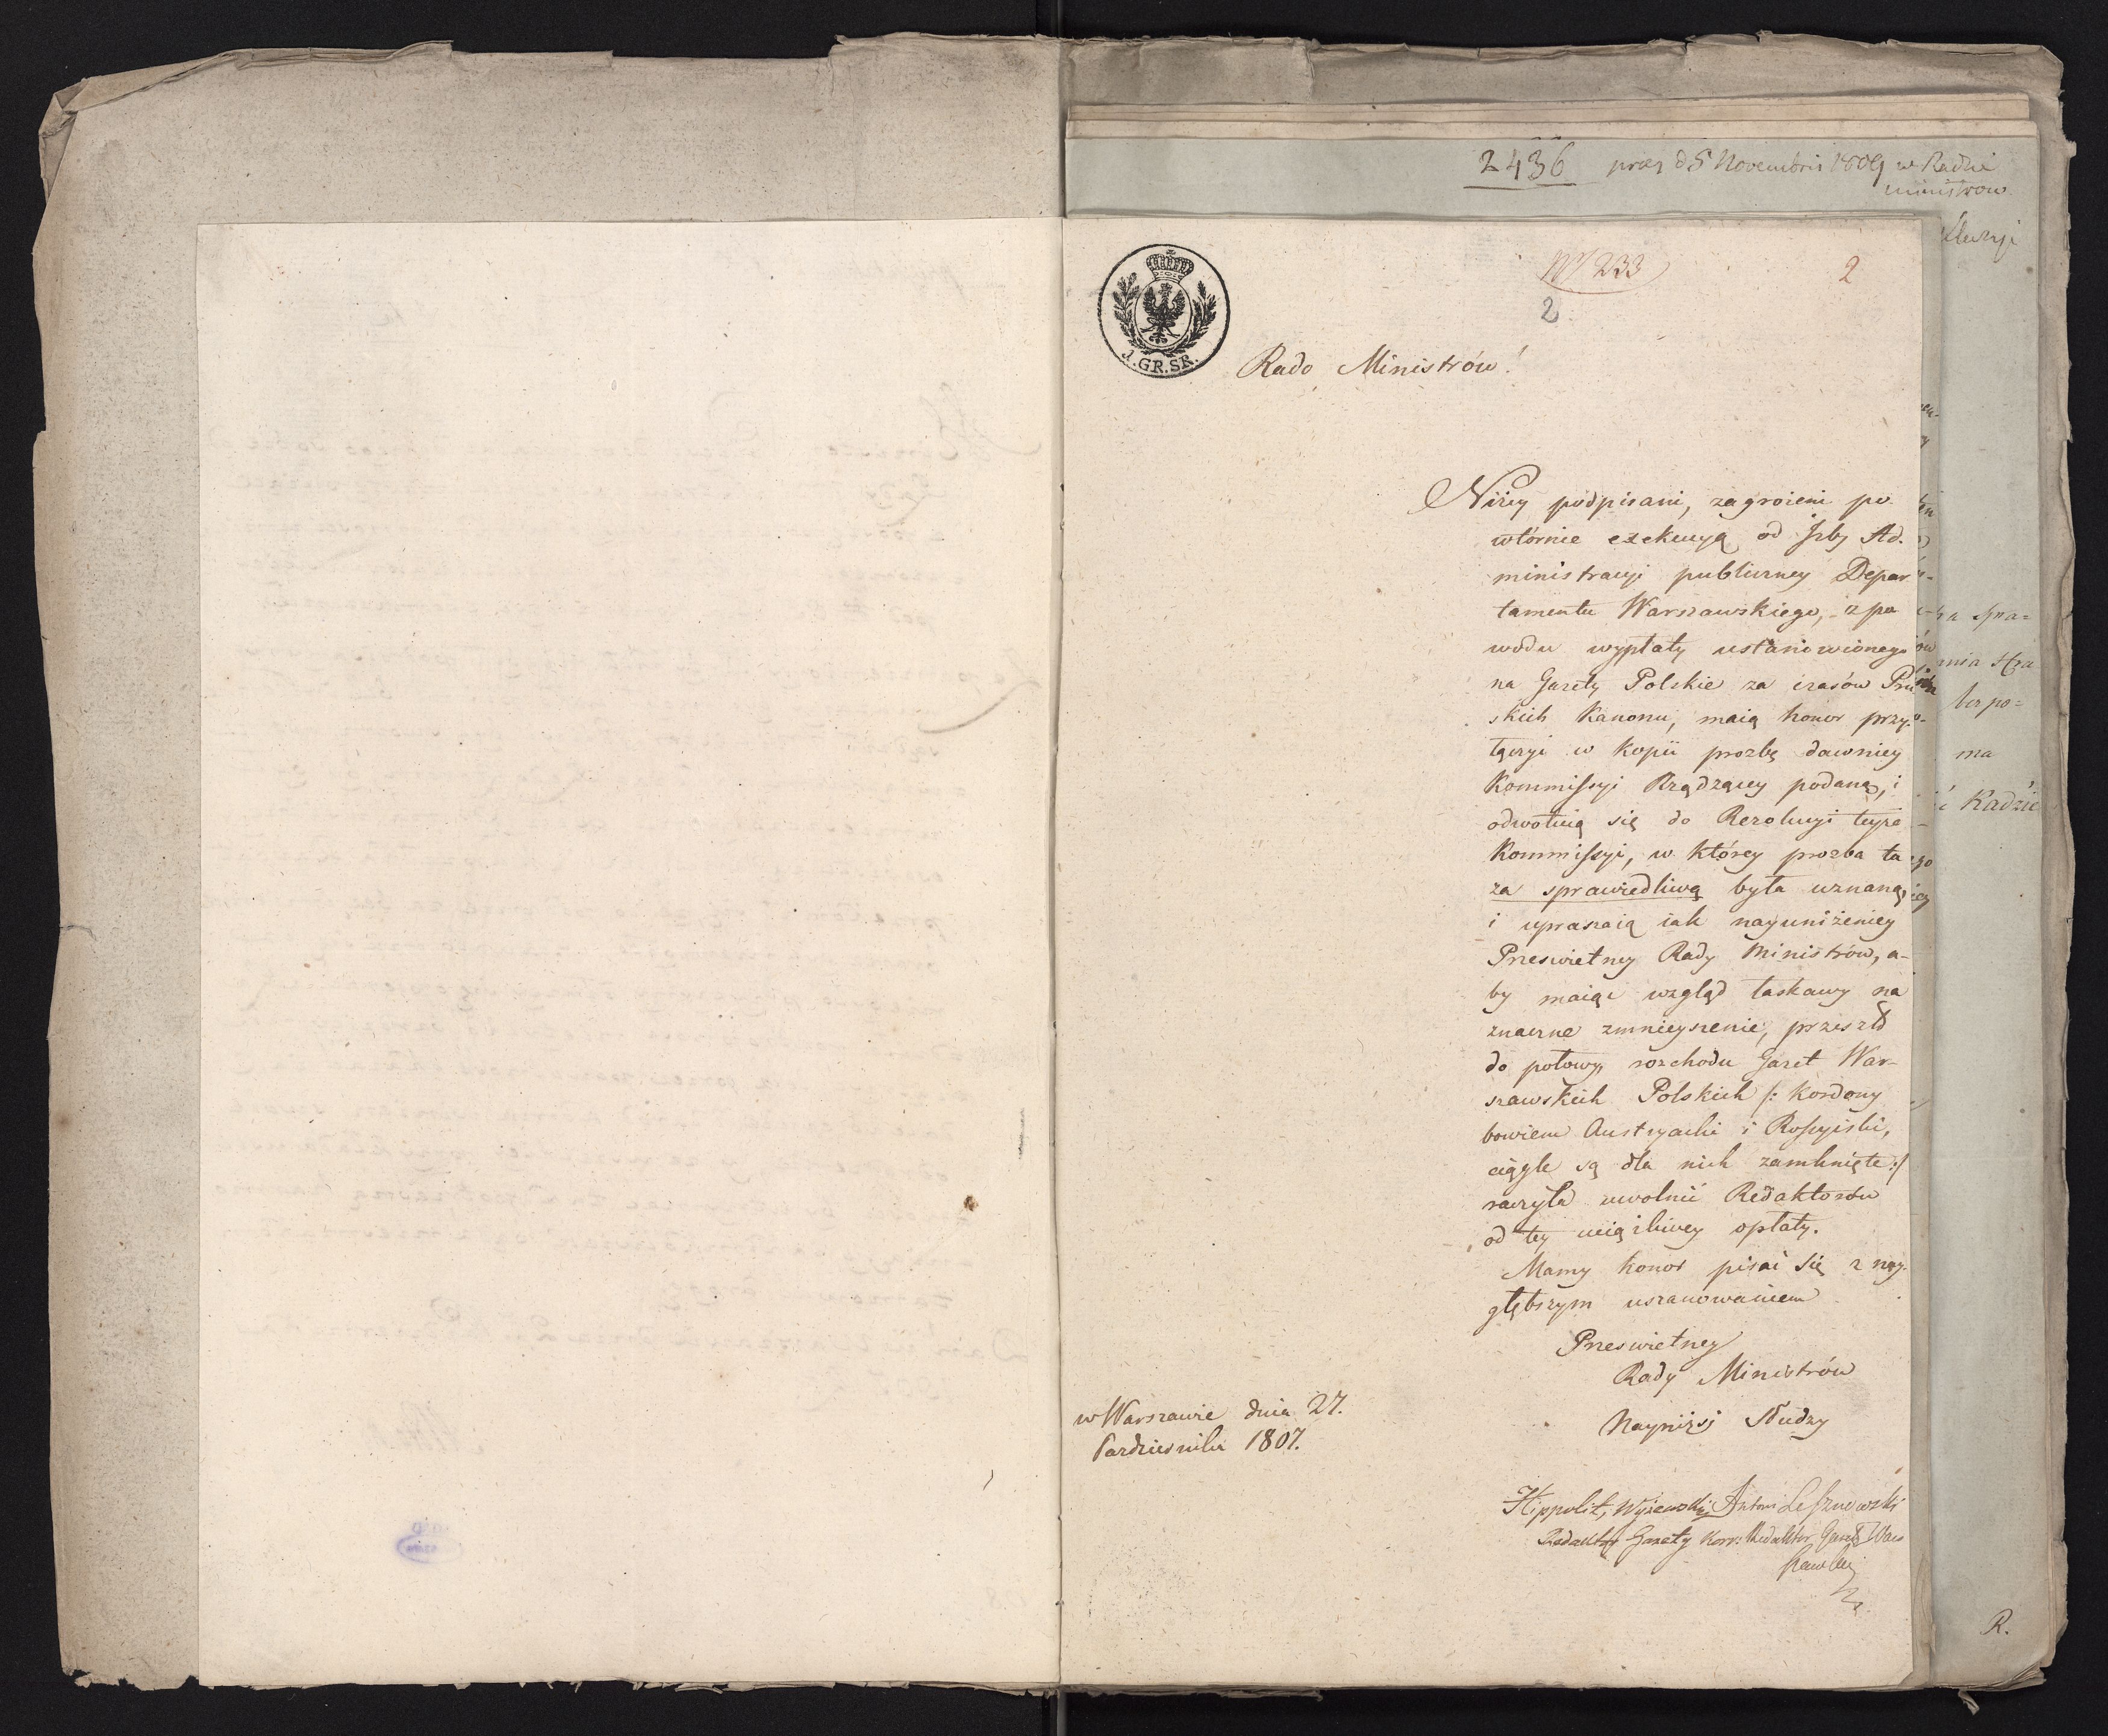 2436 prez d 5 Novembris 1809 w Radzie
ministrow.
N 233
2
2
1.GR.SR.
Rado Ministrów!
Niżey podpisani, zagrożeni po
wtórnie exekucyą od Izby Ad-
ministracyi publiczney Depar
tamentu Warszawskiego, z po
wodu wypłaty ustanowionego
na Gazety Polskie za czasów Pru
skich Kanonu, maią honor przy-
łączyć w kopii prozbę dawniey
Kommissyi Rządzącey podaną, i
odwołuią się do Rezolucyi teyże
Kommissyi, w którey prozba ta
za sprawiedliwą była uznaną,
i upraszaią iak nayuniżeniey
Prześwietney Rady Ministrów, a-
by maiąc wzgląd łaskawy na
znaczne zmnieyszenie, przeszło
do połowy, rozchodu Gazet War-
szawskich Polskich /: Kordony
bowiem Austryacki i Rossyiski,
ciągle są dla nich zamknięte :/
raczyła uwolnić Redaktorów
od tey uciążliwey opłaty.
Mamy honor pisać się z nay-
głębszym uszanowaniem
Prześwietney
Rady Ministrów
Nayniżsi Słudzy
w Warszawie dnia 27.
Pazdziernika 1807.
Hippolit Wyżewski Antoni Lesznowski
Redaktor Gazety Korr: Redaktor Gazety Wars
szawskiey
za Spa=
mia Hra
bez po=
ma
i Radzie
R.